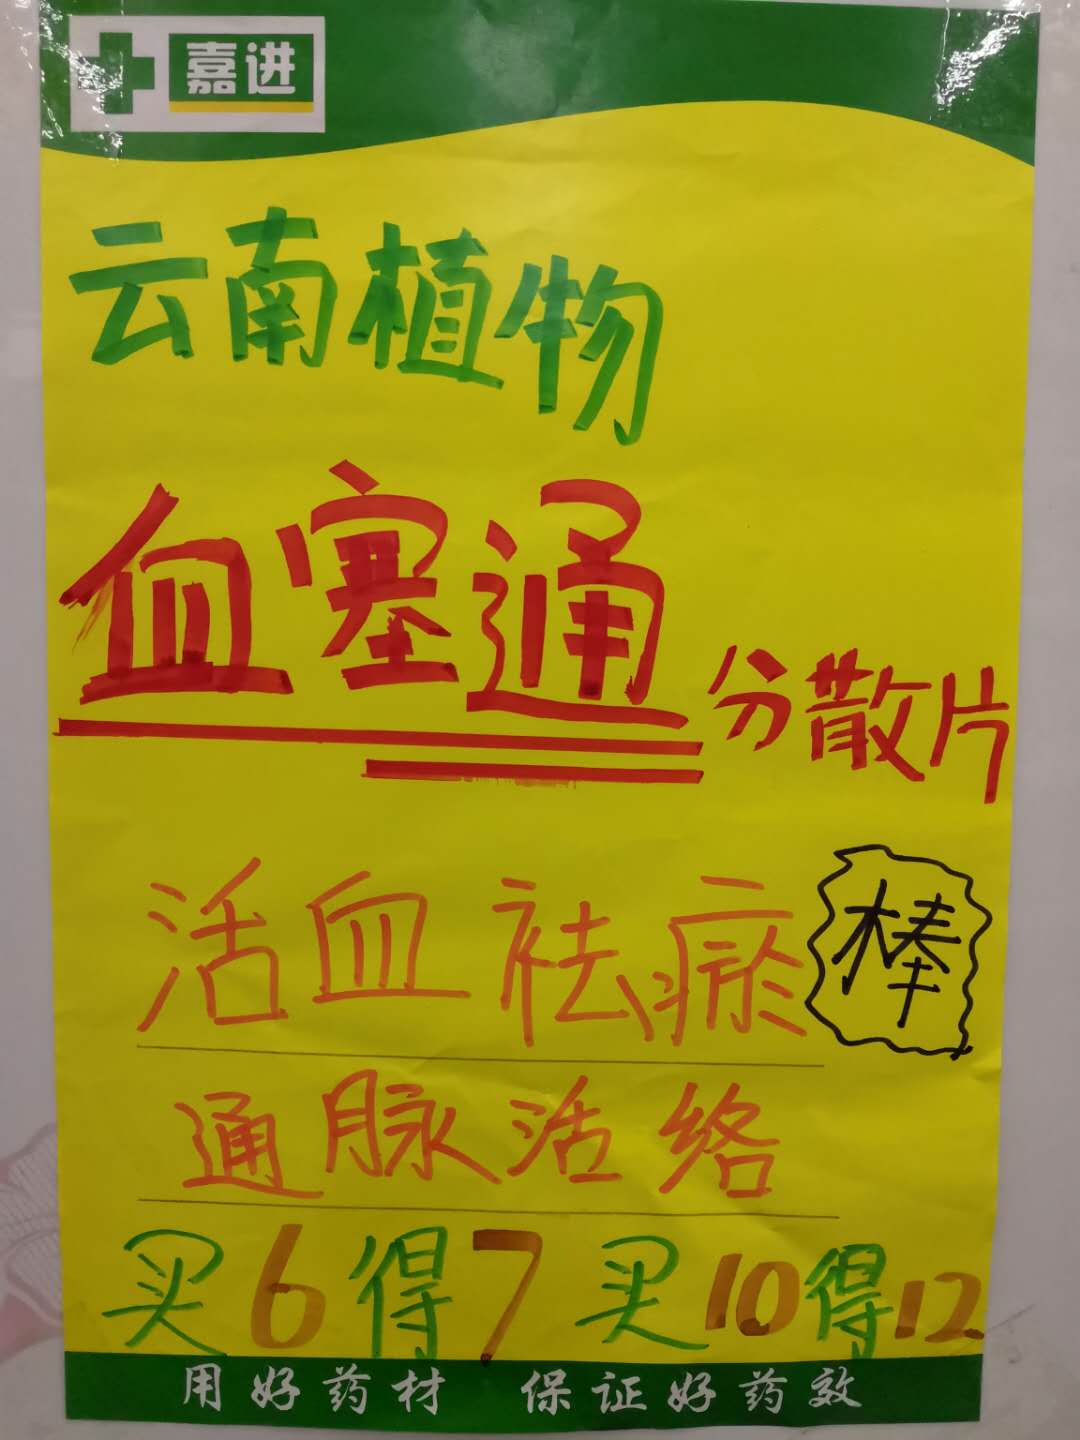 嘉进
云南植物
血塞通分散片
活血祛瘀
棒
通脉活络
买6得7 买10得12
用好药材 保证好药效